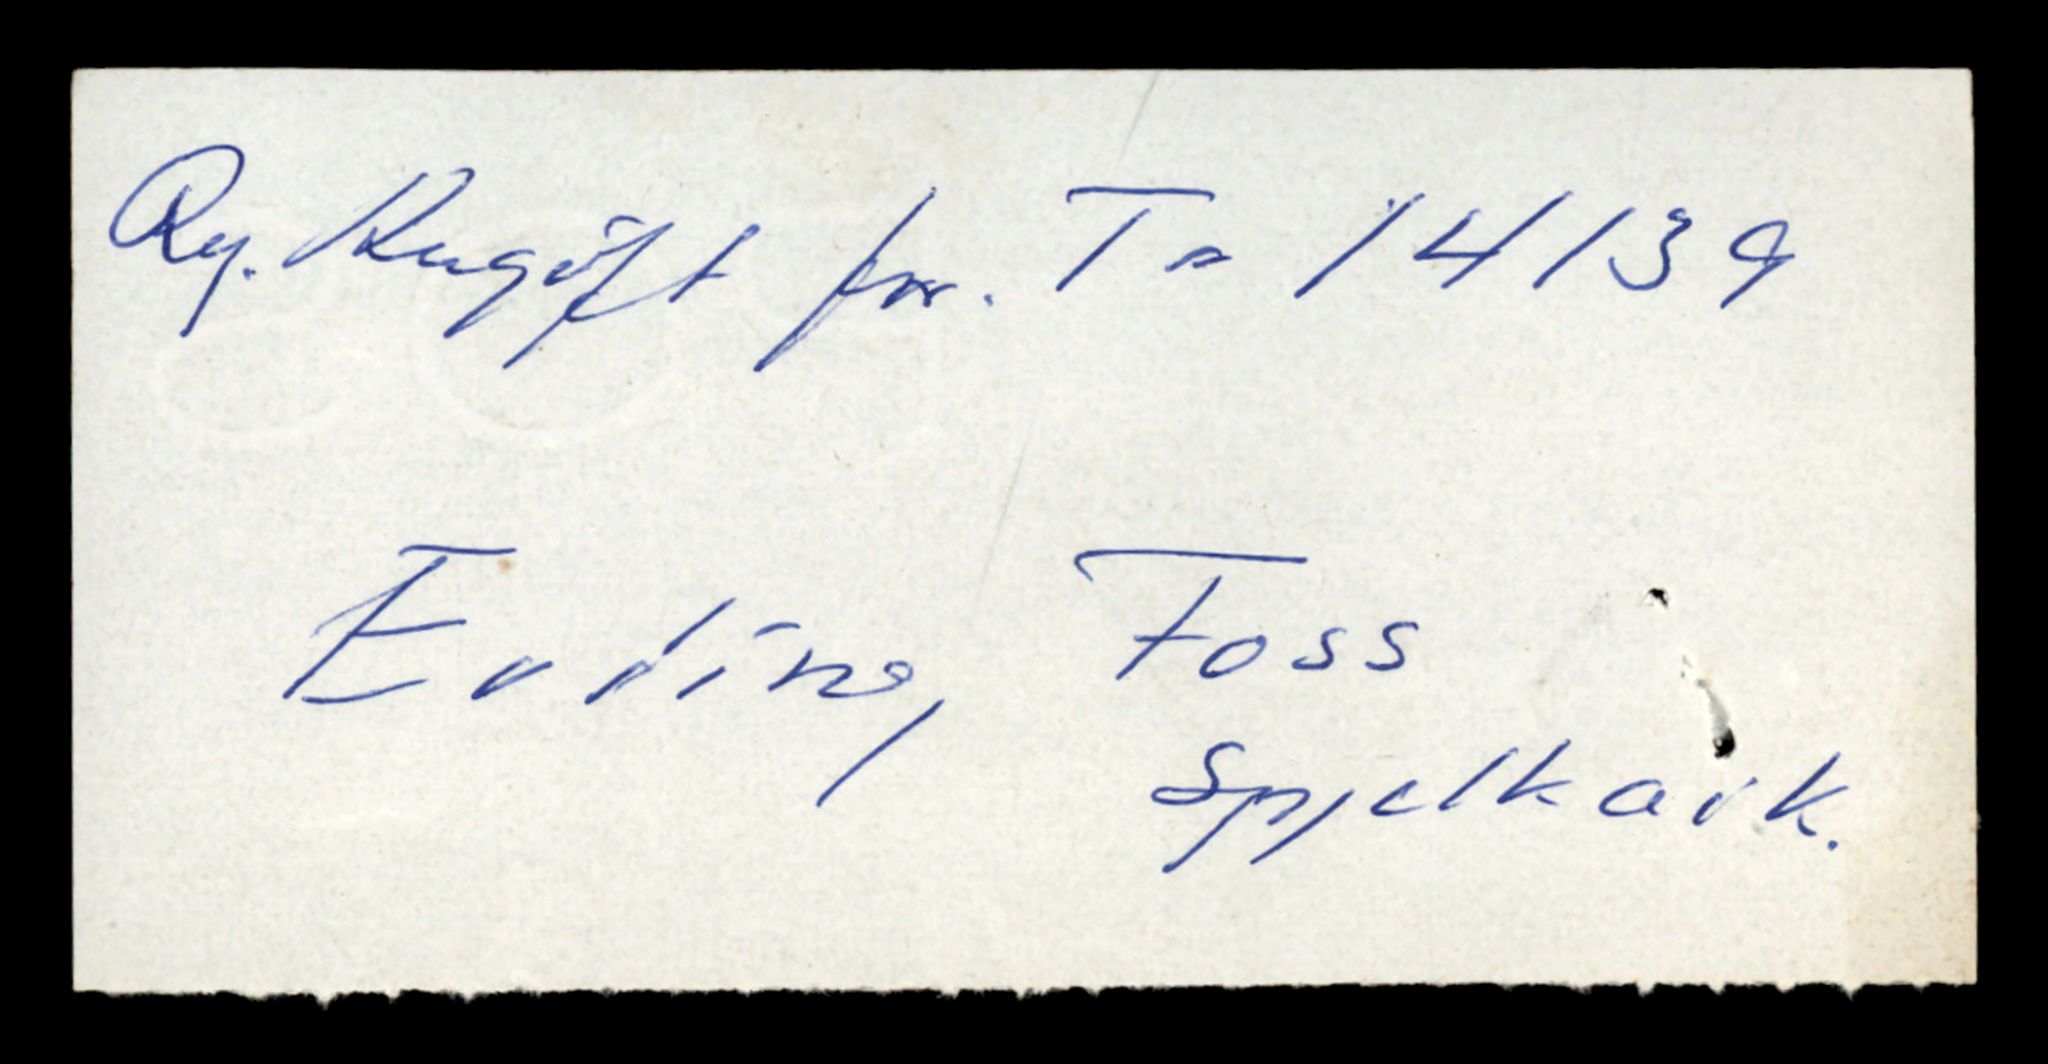 Reg. avgift for T- 14139
Erling Foss
Spjelkavik.